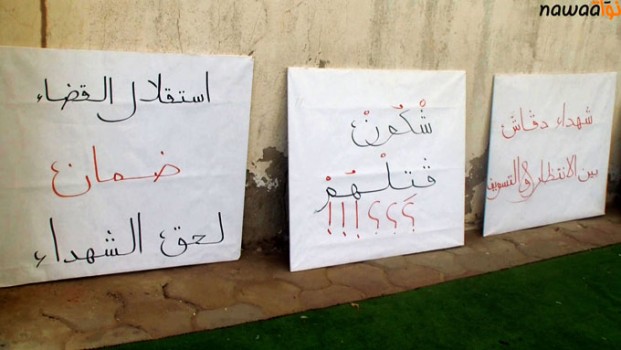 nawaaنواة
استقلال القضاء
ضمان
لحق الشهداء
شْكُونْ
قتلْهُمْ
؟؟؟؟!!!
شهداء دقاش
بين الانتظار و التسويف